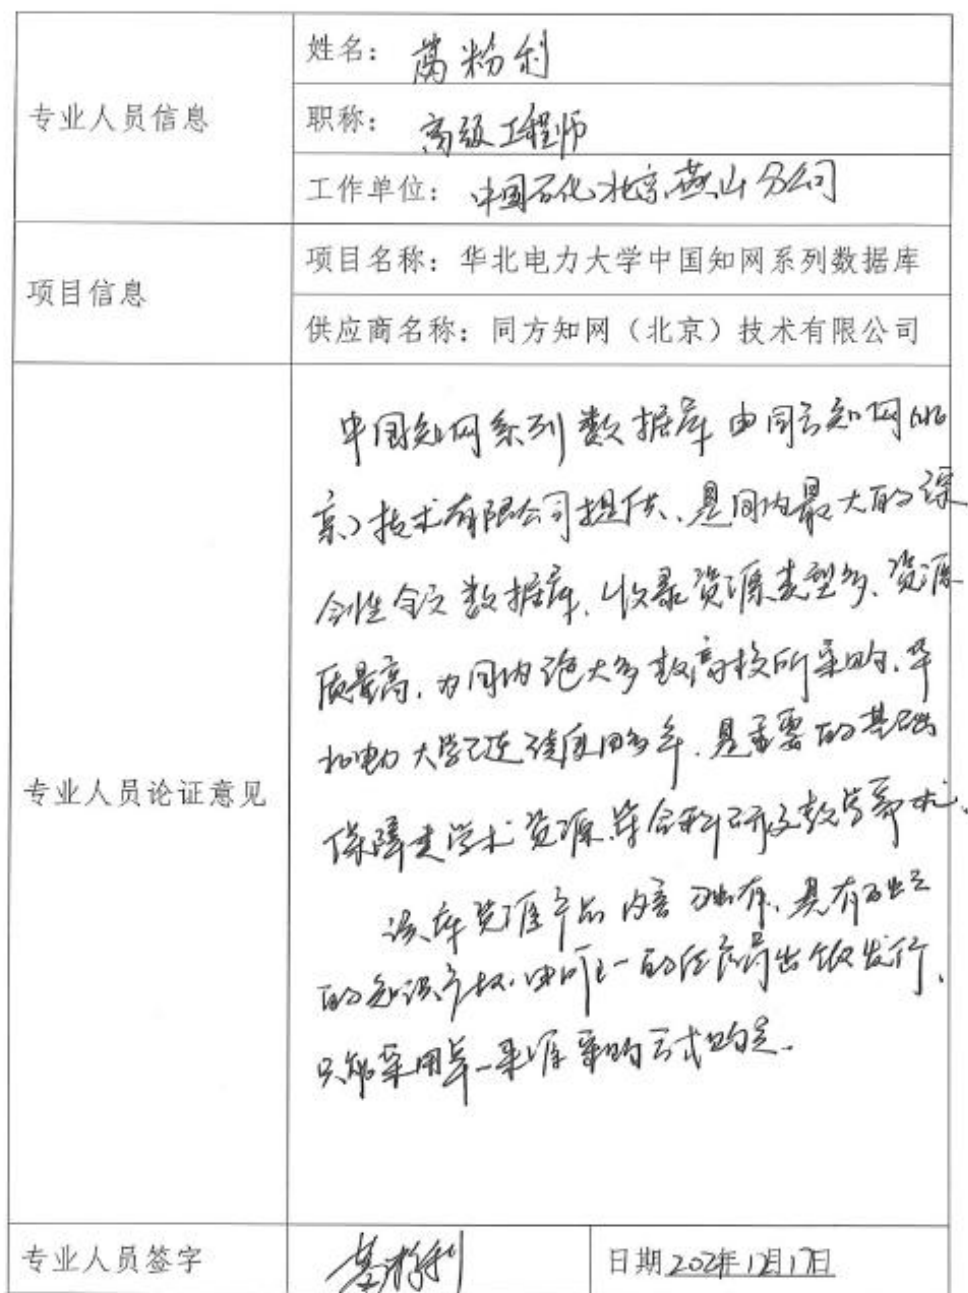 专业人员信息
姓名：蔺粉利
职称：高级工程师
工作单位：中国石化北京燕山分公司
项目信息
项目名称：华北电力大学中国知网系列数据库
供应商名称：同方知网（北京）技术有限公司
专业人员论证意见
中国知网系列数据库由同方知网（北
京）技术有限公司提供、是国内最大的综
合性全文数据库，收录资源类型多、资源
质量高，为国内绝大多数高校所采购，华
北电力大学已连续使用多年，是重要的基础
保障类学术资源，符合科研及教学需求、
该库资源产品内容独有，具有独立
的知识产权，由唯一的供应商出版发行，
只能采用单一来源采购方式购买.
专业人员签字
日期 2021年12月17日